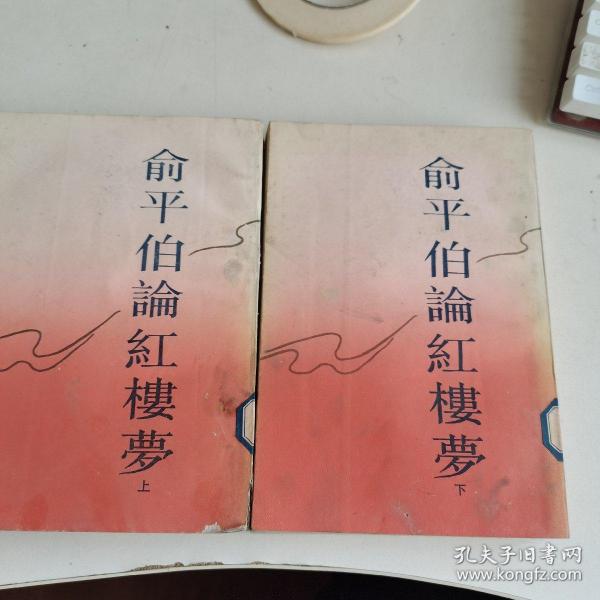 俞平伯論紅樓夢
上
俞平伯論紅樓夢
下
孔夫子旧书网
www.kongfz.com